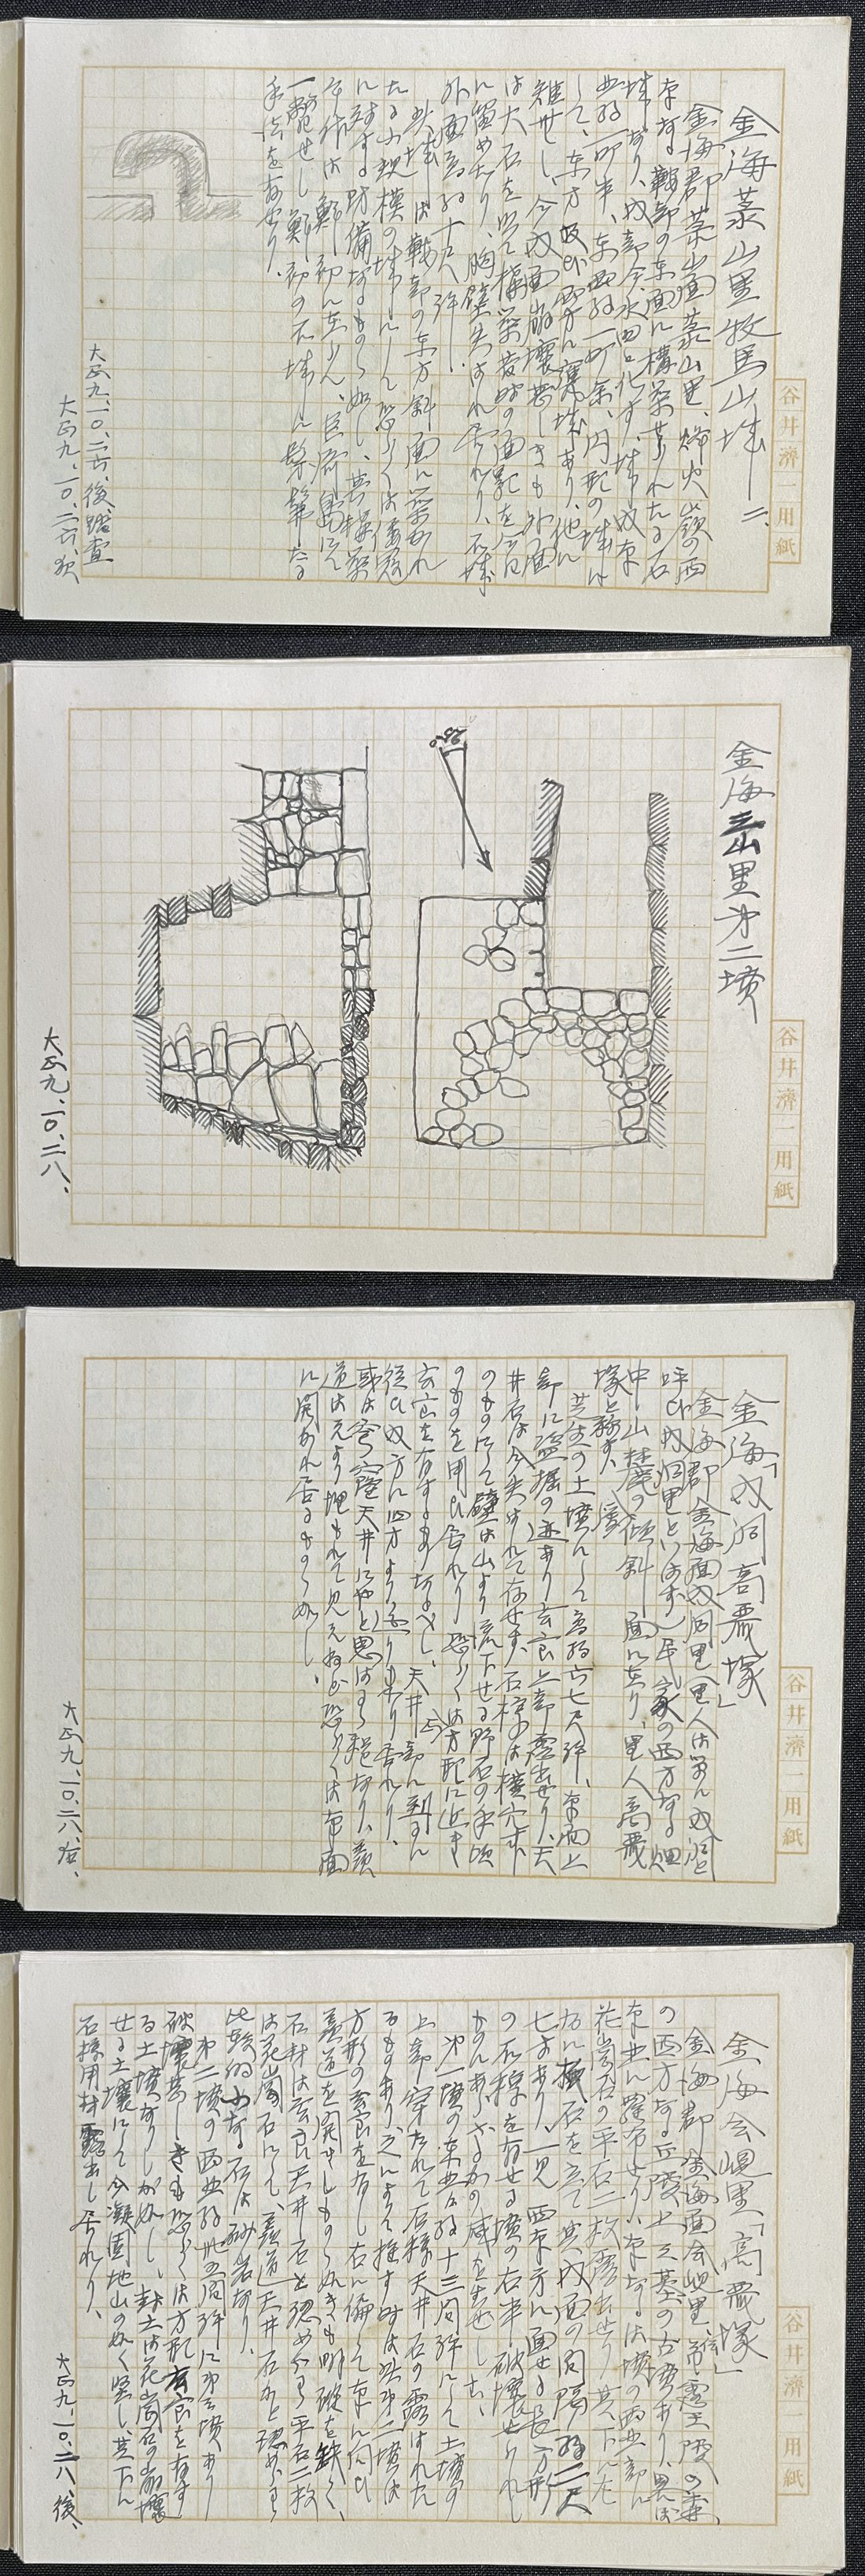 金海菉山里牧馬山城 二、
金海郡菉山面菉山里、烽火嶺の西
南なる鞍部の東面に構築せられたる石
城あり、内部今水田と化す、城内南
北約一町半、東西約一町余、円形の城に
して、東方及び西方に
雉せし、今内面崩壊甚しきも外面
は大石を以て構築當時の面影を今日
に留めたり、胸壁失はれ居れり、石城
外面高約十尺許、
此城は鞍部の東方斜面に築かれ
たる小規模の城にして恐らくは倭寇
に対する防備なるものゝ如し、其構築
年代は鮮初に在らん、
一驚せし鮮初の石城に髣髴たる
手法を有せり、
大正九、一〇、二六、後踏査
大正九、一〇、二六、夜
谷井濟一用紙
金海三山里第二墳
大正九、一〇、二八、
谷井濟一用紙
金海「内洞高麗塚」
金海郡金海面内洞里(里人は單に内洞と
呼び内洞里といはず)民家の西方なる畑
中、山麓の傾斜面に在り、里人高麗
塚と稱す、
芝生の土墳にして高約六七尺許、南面上
部に盗掘の迹あり玄室上部露出せり、天
井石は今失はれて存せず、石槨は横穴式
のものにて壁は山より流下せる野石の手頃
のものを用ひ居れり恐らくは方形に近き
玄室を有するものなるべし、天井部に到るに
従ひ内方に四方より迫り来り居れり、
或は穹窿天井にやと思はるゝ程なり、羨
道は元より埋もれて見えねど恐らくは南面
に開かれ居るものゝ如し、
大正九、一〇、二八、夜、
谷井濟一用紙
金海会峴里「高麗塚」
金海郡金海面会峴里、首露王陵の東、
の西方なる丘陵上三基の古墳あり、
南北に羅布せり、南なるは墳の西北部に
花崗石の平石二枚露出せり其下に左
右に積石を立て其内面の間隔約二尺
七寸あり、一見西南方に面せる長方形
の石槨を有せる墳の右半破壊せられし
ものにあらざるかの感を生ぜしむ、
第一墳の東北方約十三間許にして土墳の
上部穿たれて石槨天井石の露はれた
るものあり、之によりて推す時は此第二墳は
方形の玄室を有し右に偏して南に向ひ
羨道を開きしものゝ如きも明確を缺く、
石材は玄室天井石と認めらるゝ平石二枚
は花崗石にて、羨道天井石かと認めらるゝ
比較的小なる石は砂岩なり、
第二墳の西北約廿五間許に第三墳あり
破壊甚しきも恐らくは方形玄室を有す
る土墳なりしが如し、封土は花崗石の崩壊
せる土壌にして今凝固地山の如く堅し、其下に
石槨用材露出し居れり、
大正九、一〇、二八、後、
谷井濟一用紙